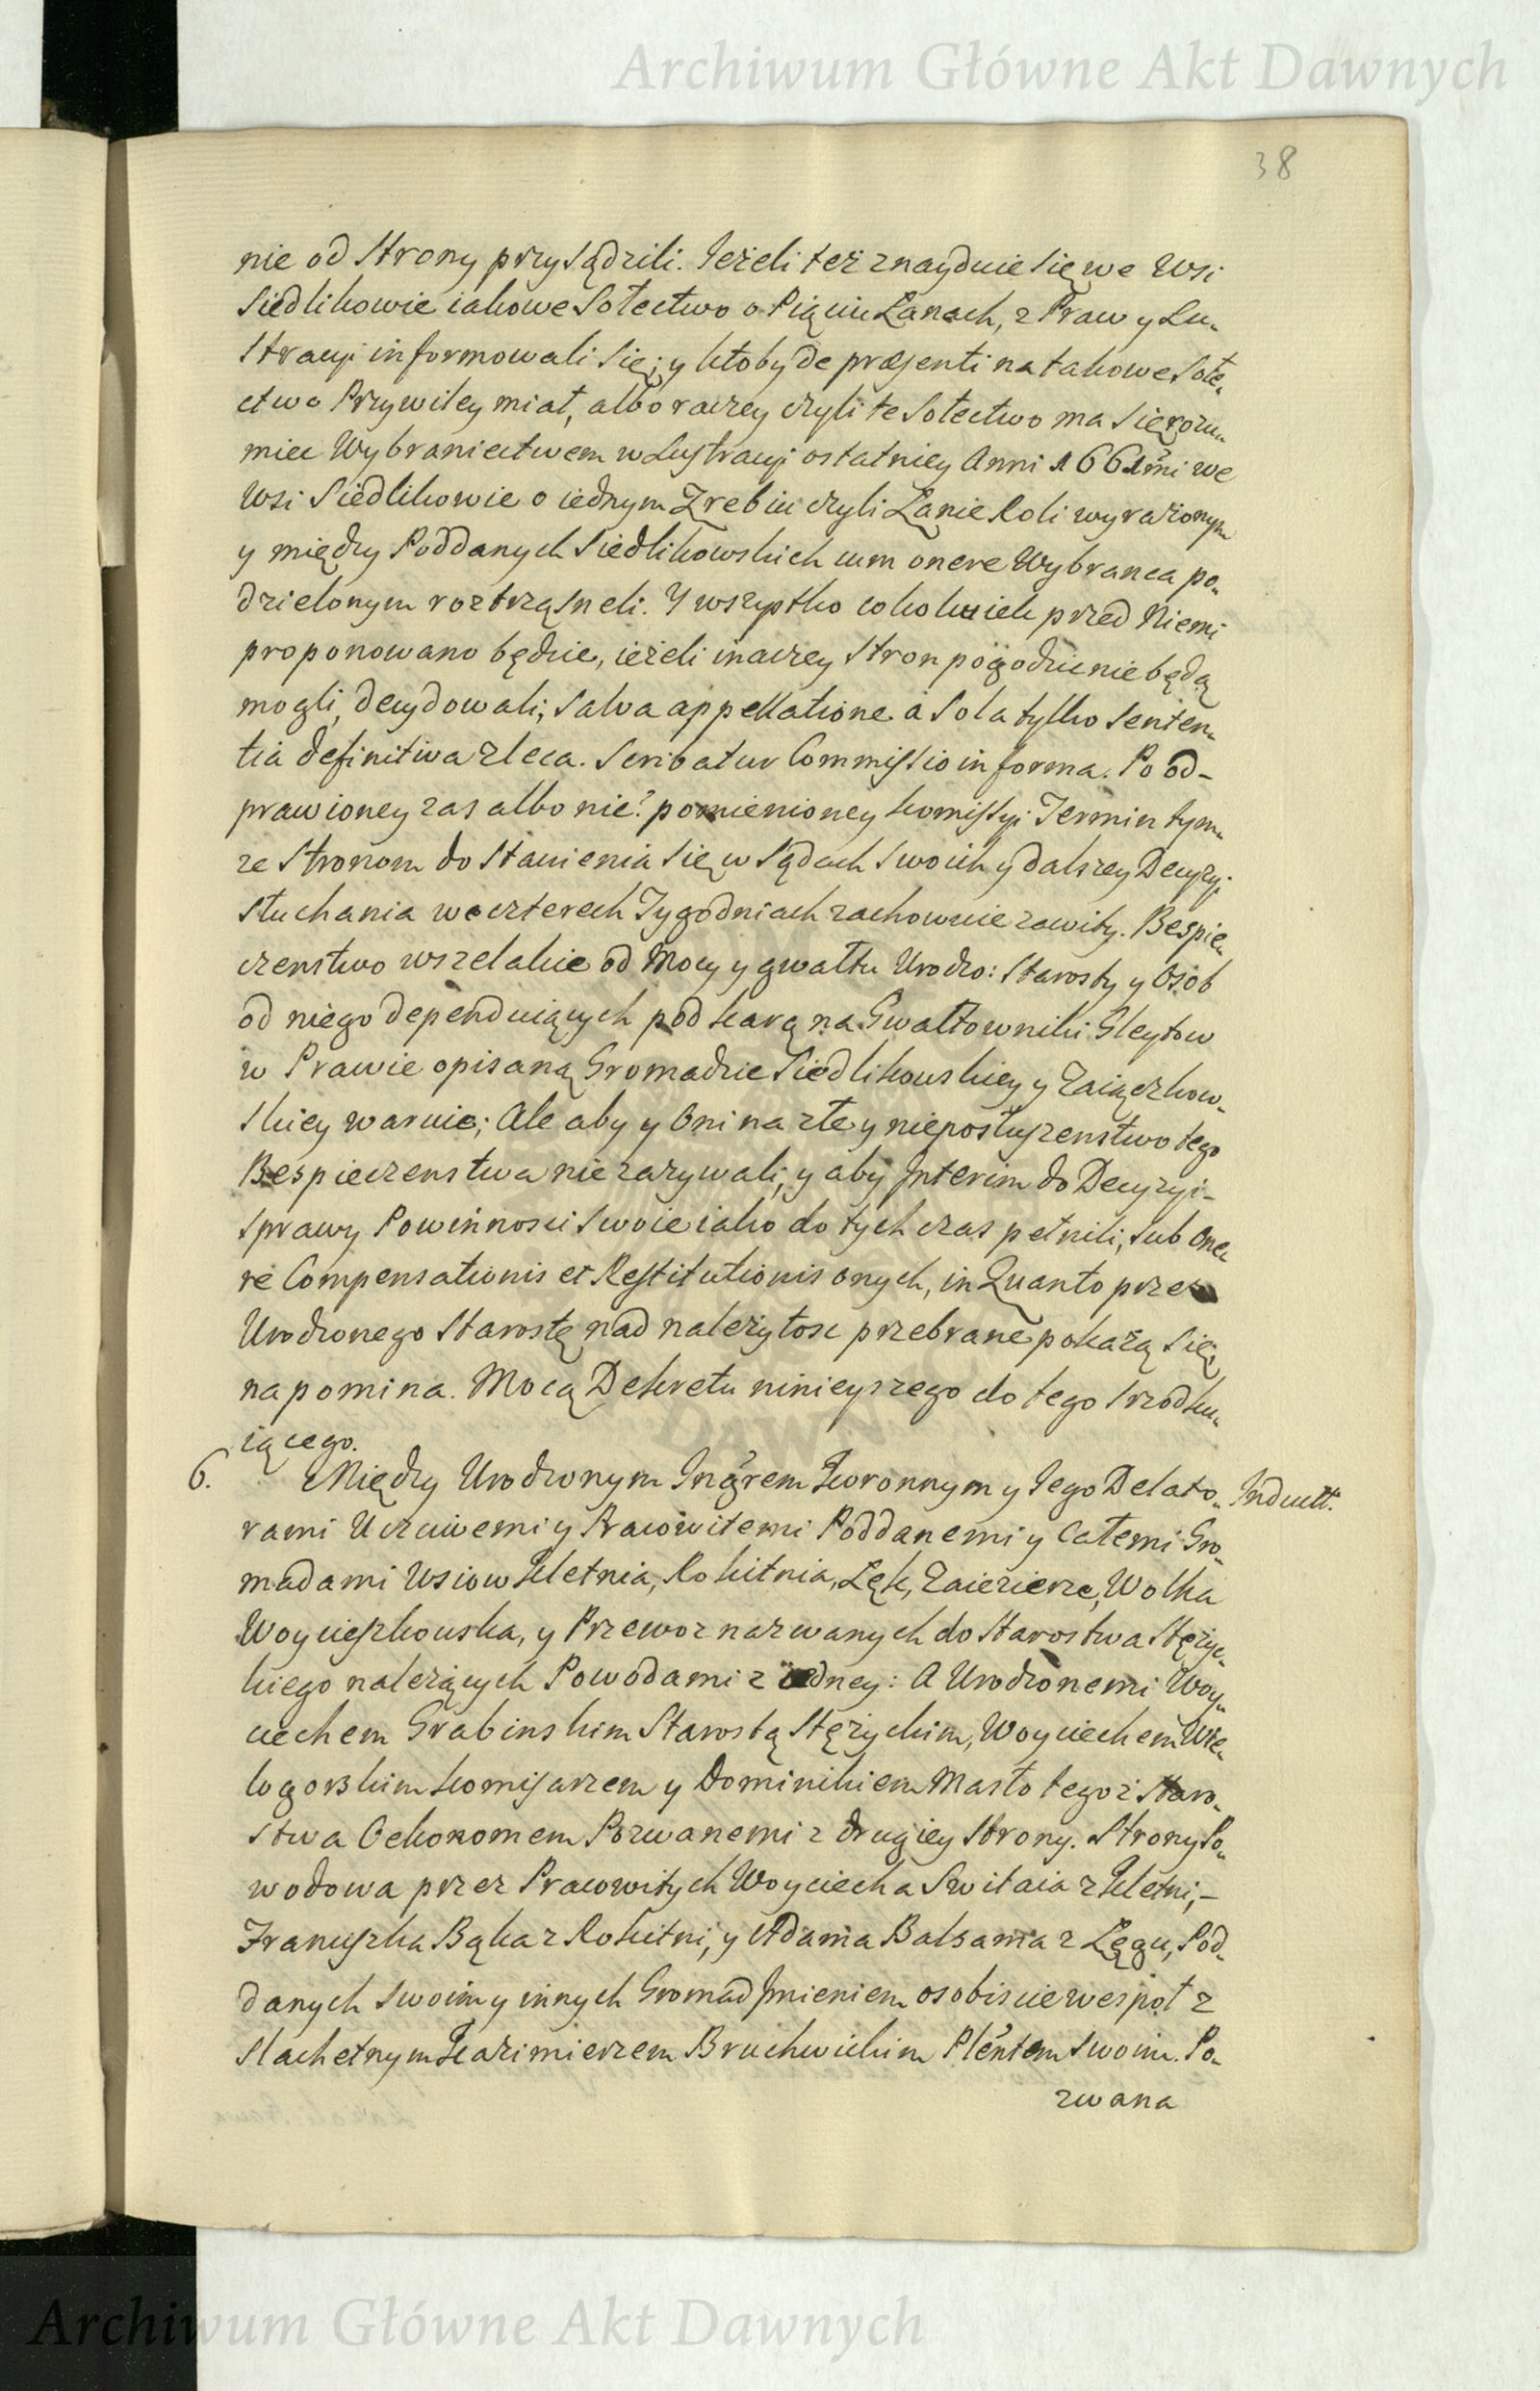 Archiwum Główne Akt Dawnych
38
nie od Strony przysądzili. Jeżeli też znayduie się we Wsi
Siedlikowie iakowe Sołectwo o Pięciu Łanach, z Praw y Lu-
stracyi informowali się; y ktoby de præsenti na takowe Sołe-
ctwo Przywiley miał, albo raczey czyli te Sołectwo ma się rozu-
miec Wybraniectwem w Lustracyi ostatniey Anni 1661mi we
Wsi Siedlikowie o iednym Zrebiu czyli Łanie Roli wyrażonym
y między Poddanych Siedlikowskich cum onere Wybranca po-
dzielonym roztrząsneli. Y wszystko cokolwiek przed Niemi
proponowano będzie, ieżeli inaczey Stron pogodzic nie będą
mogli, decydowali; salva appellatione a sola tylko senten-
tia definitiva zleca. Scribatur Commissio in forma. Po od-
prawioney zas albo nie? pomienioney kommissyi Termin tym-
ze Stronom do Stawienia się w Sądach Swoich y dalszey Decyzyi
słuchania w czterech Tygodniach zachowuie zawity. Bespie-
czenstwo wszelakie od Mocy y gwałtu Urodzo: Starosty y Osob
od niego dependuiących pod karą na Gwałtowniki Gleytow
w Prawie opisaną Gromadzie Siedlikowskiey y Zaiączkow-
skiey waruie; Ale aby y Oni na złe y nieposłuszenstwo tego
Bespieczenstwa nie zazywali, y aby Interim do Decyzyi-
sprawy Powinnosci Swoie iako do tych czas pełnili, sub One-
re Compensationis et Restitutionis onych, in Quanto przez
Urodzonego Starostę nad należytosc przebrane pokażą się,
napomina. Mocą Dekretu ninieyszego do tego srzodku-
iącego.
6. Między Urodzonym Ingrem Koronnym y Jego Delato-
Indult.
rami Uczciwemi y Pracowitemi Poddanemi y Całemi Gro-
madami Wsiow Kletnia, Rokitnia, Łęk, Zaiezierze, Wolka
Woycieszkowska, y Przewoz nazwanych do Starostwa Stężyc-
kiego należących Powodami z iedney: A Urodzonemi Woy-
ciechem Grabinskim Starostą Stężyckim, Woyciechem Wie-
logorskim komisarzem y Dominikiem Masło tegoż Staro-
stwa Oekonomem Pozwanemi z drugiey Strony. Strony Po-
wodowa przez Pracowitych Woyciecha Switaia z Kletni,-
Franciszka Bąka z Rokitni, y Adama Balsama z Łęgu, Pod-
danych Swoim y innych Gromad Imieniem osobiscie wespoł z
Slachetnym Kazimierzem Bruchwickim Plentem swoim. Po-
zwana
Archiwum Główne Akt Dawnych